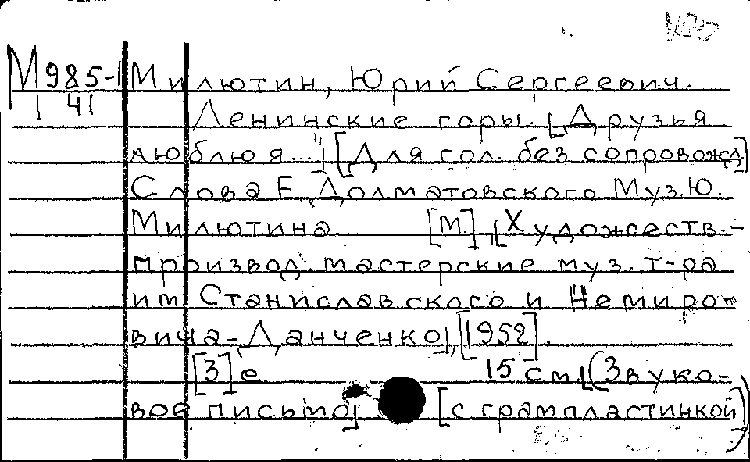 М985-1 Милютин, Юрий Сергеевич.
41 Ленинские горы. [Друзья
люблю я...] [Для гол. без сопровожд.]
Слова Е. Долматовского Муз. Ю.
Милютина [М.], [Художеств.-
производ. мастерские муз. т-ра
им Станиславского и Немиро-
вича-Данченко], [1952].
[3] с 15 см. (Звуко-
вое письмо) [с грампластинкой]